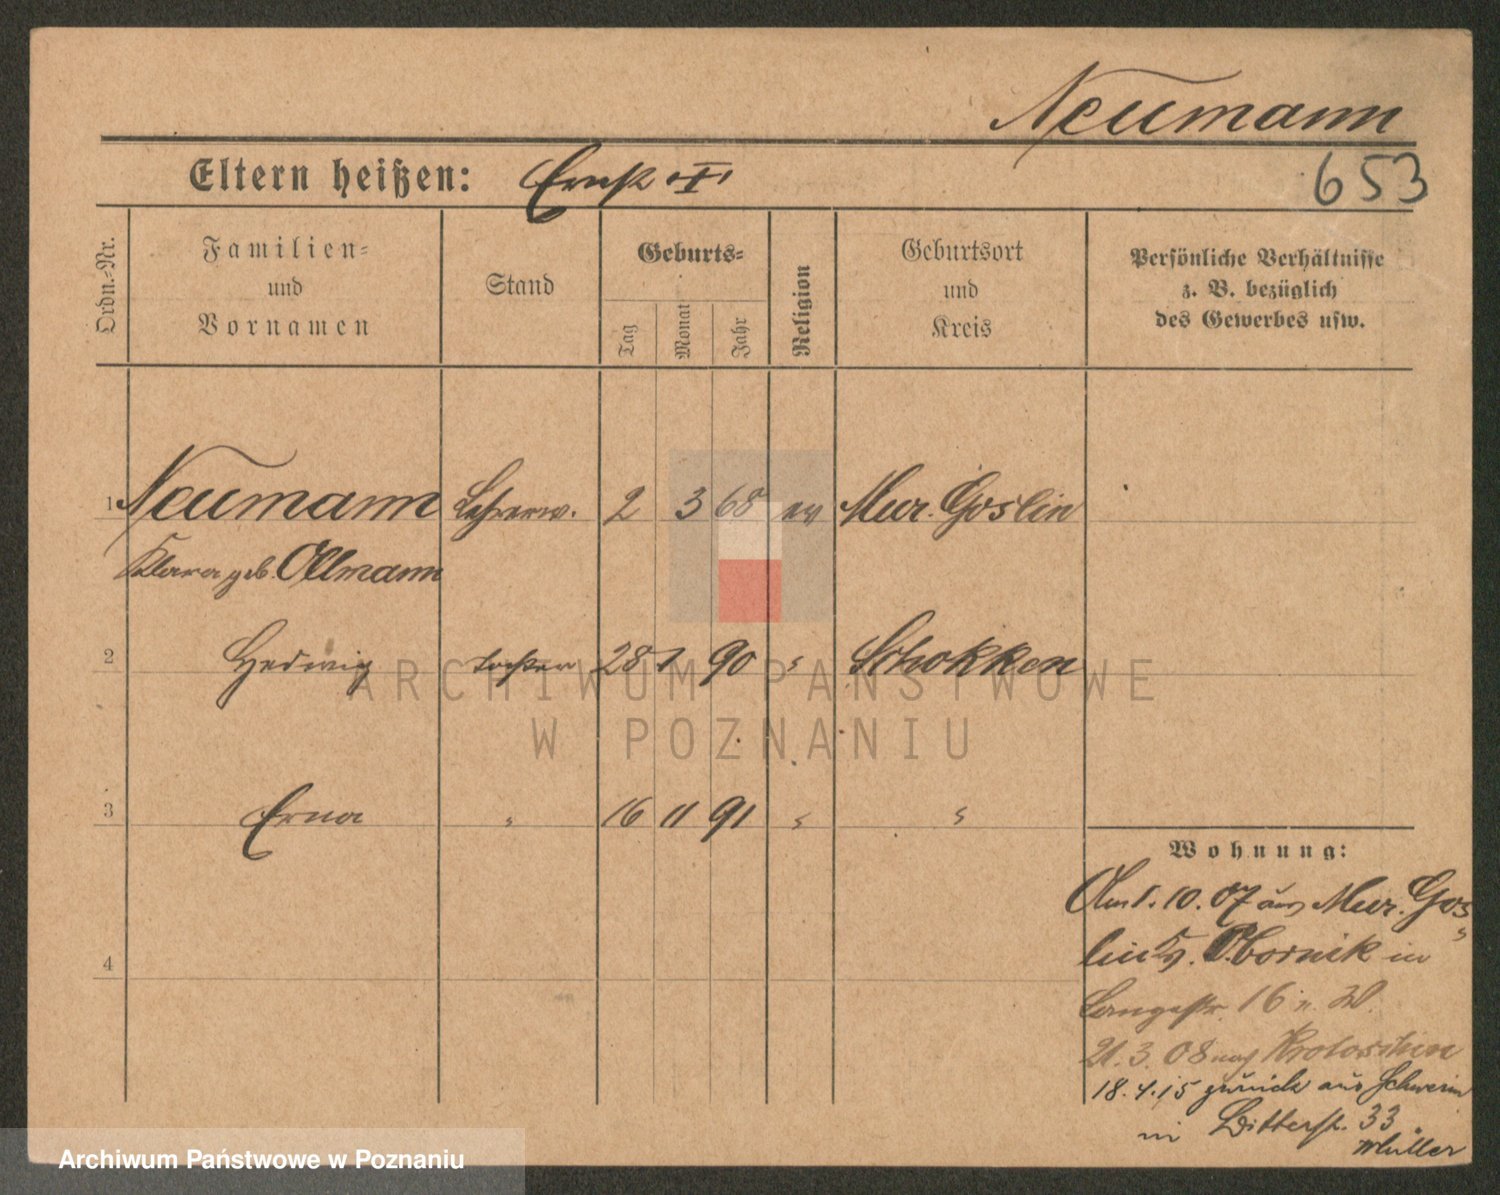 Neumann
653
Eltern heißen: Ernst
Ordn.-Nr.
Familien-
und
Vornamen
Stand
Geburts-
Tag
Monat
Jahr
Religion
Geburtsort
und
Kreis
Persönliche Verhältnisse
z. B. bezüglich
des Gewerbes usw.
1 Neumann Lehrerw. 2 3 68 ev Mur. Goslin
Klara geb. Ollmann
2 Hedwig Tochter 28 1 90 " Schokken
3 Erna " 16 11 91 " "
4
Wohnung:
Am 1. 10. 07 aus Mur. Gos-
lin Kr. Obornik in
Langestr. 16 n. W.
21. 3. 08 nach Krotoschin
18.4.15 zurück aus Schwerin
in 33
Müller
ARCHIWUM PAŃSTWOWE
W POZNANIU
Archiwum Państwowe w Poznaniu